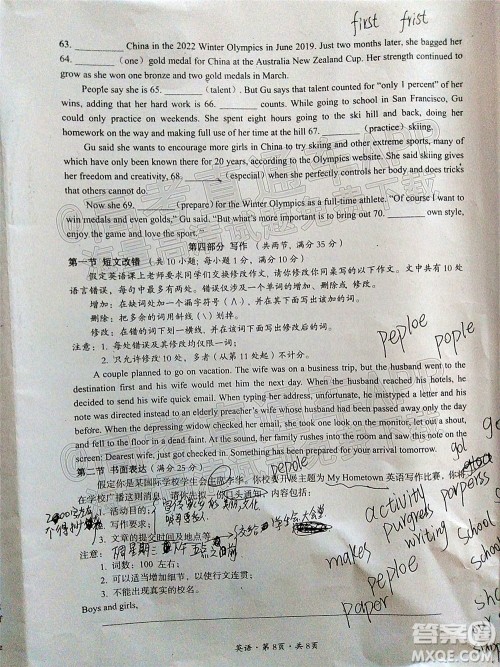 first frist
63. ________ China in the 2022 Winter Olympics in June 2019. Just two months later, she bagged her
64. ________ (one) gold medal for China at the Australia New Zealand Cup. Her strength continued to
grow as she won one bronze and two gold medals in March.
People say she is 65. ________ (talent). But Gu says that talent counted for "only 1 percent" of her
wins, adding that her hard work is 66. ________ counts. While going to school in San Francisco, Gu
could only practice on weekends. She spent hours going to the ski hill and back, doing her
homework on the way and making full use of her time at the hill 67. ________ (practice) skiing.
Gu said she wants to encourage more girls in China to try skiing and other extreme sports, many of
which have only been there for 20 years, according to the Olympics website. She said skiing gives
her freedom and creativity, 68. ________ (especial) when she perfectly controls her body and does tricks
that others cannot do.
Now she 69. ________ (prepare) for the Winter Olympics as a full-time athlete. "Of course I want to
win medals and even golds," Gu said. "But what's more important is to bring out 70. ________ own style,
enjoy the game and love the sport."
第四部分 写作 (共两节, 满分 35 分)
第一节 短文改错 (共 10 小题; 每小题 1 分, 满分 10 分)
假定英语课上老师要求同学们交换修改作文, 请你修改你同桌写的以下作文。文中共有 10 处
语言错误, 每句中最多有两处。错误仅涉及一个单词的增加、删除或 修改。
增加: 在缺词处加一个漏字符号 (∧), 并在其下面写出该加的词。
删除: 把多余的词用斜线 (\) 划掉。
修改: 在错的词下划一横线, 并在该词下面写出修改后的词。
注意: 1. 每处错误及其修改均仅限一词;
2. 只允许修改 10 处, 多者 (从第 11 处起) 不计分。
peploe
pople
A couple planned to go on vacation. The wife was on a business trip, but the husband went to the
destination first and his wife would met him the next day. When the husband reached his hotels, he
decided to send his wife quick email. When typing her address, unfortunate, he mistyped a letter and his
note was directed instead to an elderly preacher's wife whose husband had been passed away only the
day before. When the one checked her emails, she took one look on the monitor, let out a shout, and
fell to the floor in a dead faint. At the sound, her family rushes into the room and saw this note on the
screen: Dearest wife, just got checked in. Everything is prepared for your arrival tomorrow.
第二节 书面表达 (满分 25 分)
people
假定你是某国际学校学生会主席李华, 你校要开展主题为 My Hometown 英语写作比赛, 你将
在学校广播这则消息。请你先拟一份口头通知, 内容包括:
1. 活动目的;
2. 写作要求;
3. 文章的提交时间及地点等。
注意:
1. 词数: 100 左右;
2. 可以适当增加细节, 以使行文连贯;
3. 不能出现真实的校名。
Boys and girls,
activity
writing
makes
peploe
paper
school
英语·第 8 页·共 8 页
答案圈
MXQE.COM